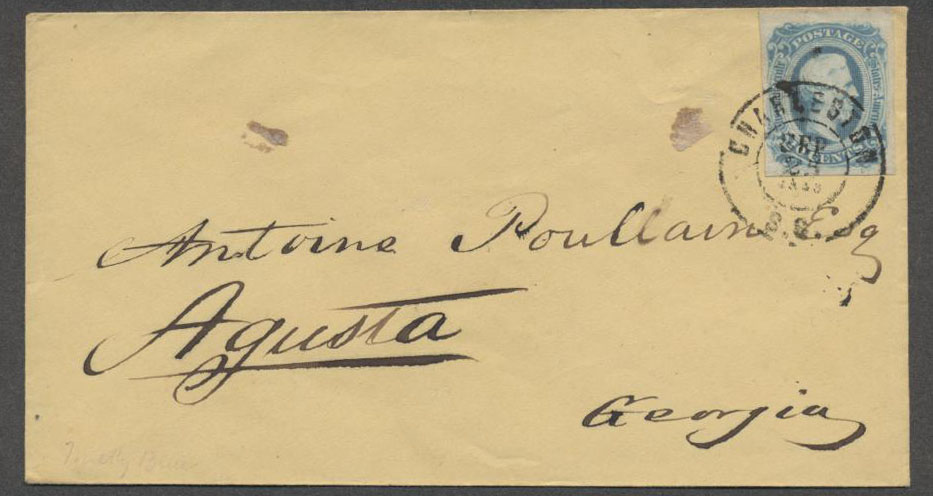 POSTAGE
CENTS
CHARLESTON
SEP
S.C.
Antoine Poullain Esq
Agusta
Georgia